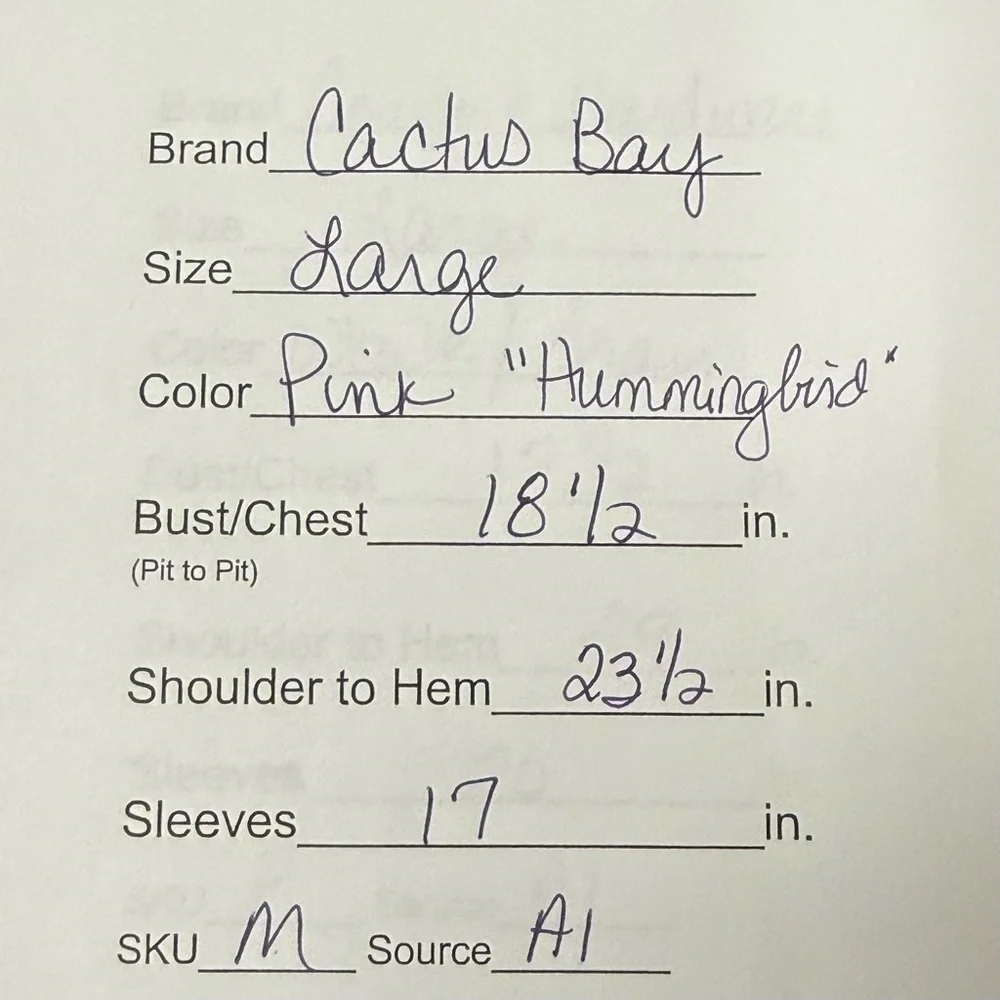 Brand Cactus Bay
Size Large
Color Pink "Hummingbird"
Bust/Chest 18 1/2 in.
(Pit to Pit)
Shoulder to Hem 23 1/2 in.
Sleeves 17 in.
SKU M Source A1